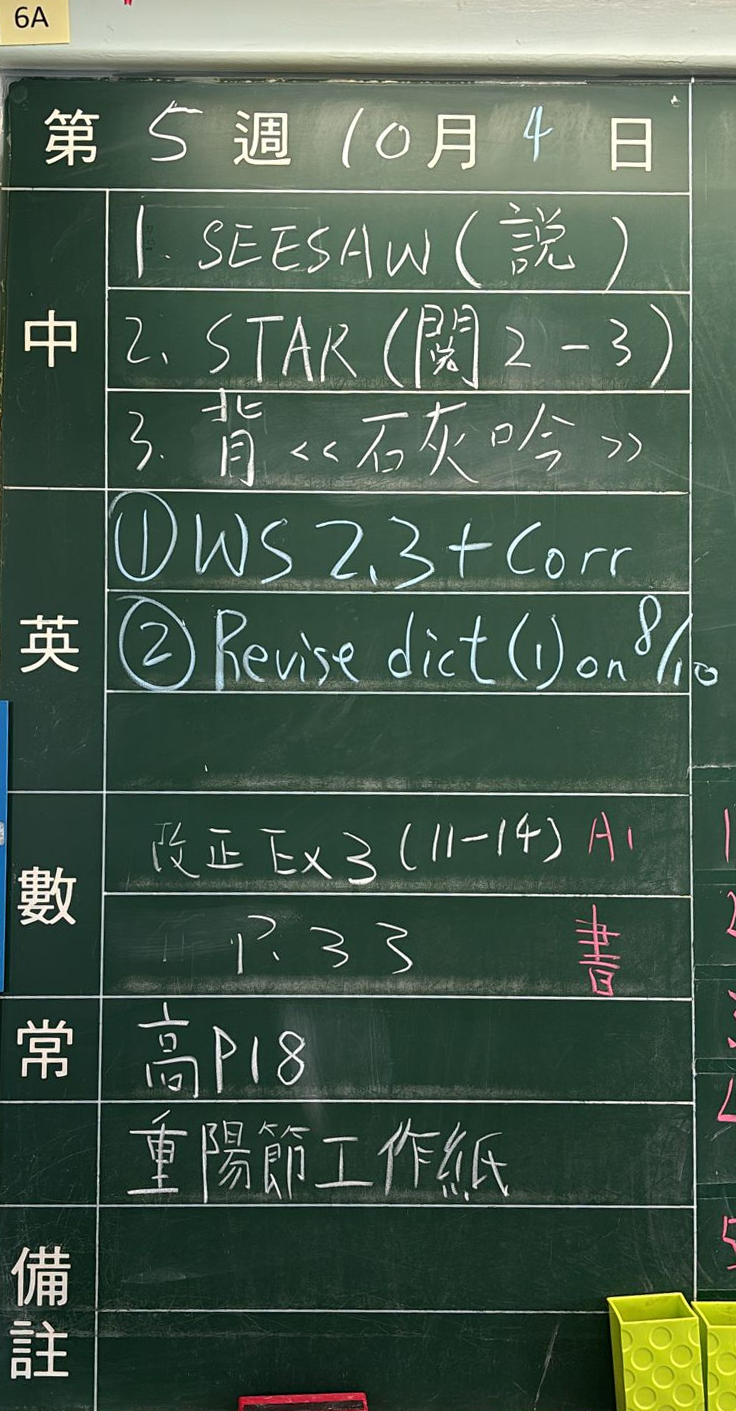 6A
第 5 週 10 月 4 日
中
1. SEESAW (説)
2. STAR (閱 2-3)
3. 背<<石灰吟>>
英
① WS 2.3 + Corr
② Revise dict (1) on 8/10
數
改正 Ex 3 (11-14) A1
〃 P. 33 書
常
高 P18
重陽節工作紙
備註